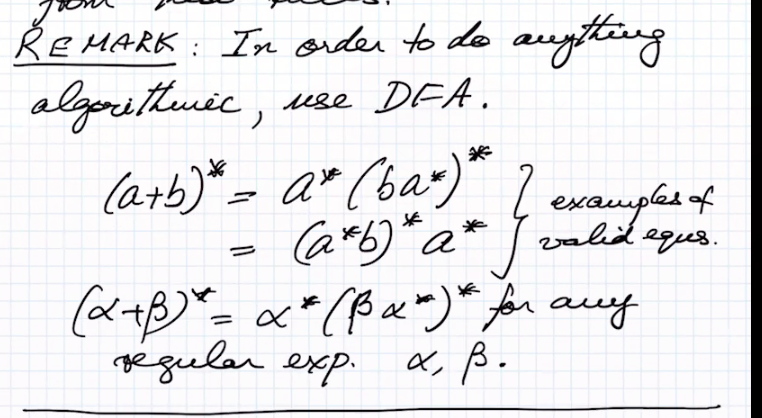 from these rules.
REMARK: In order to do anything
algorithmic, use DFA.
(a+b)* = a*(ba*)* } examples of
= (a*b)*a* } valid eqns.
(α+β)* = α*(βα*)* for any
regular exp. α, β.